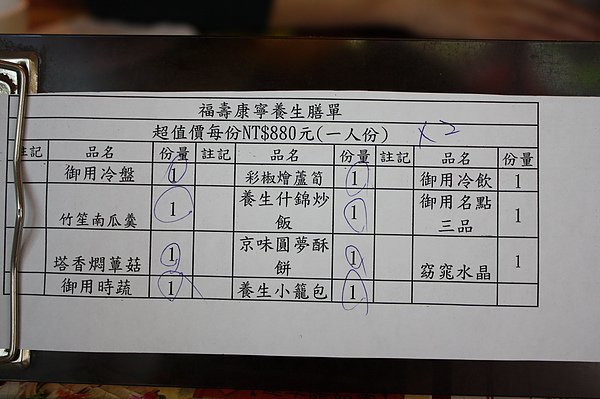 福壽康寧養生膳單
超值價每份NT$880元(一人份) x2
註記 品名 份量 註記 品名 份量 註記 品名 份量
御用冷盤 1 彩椒燴蘆筍 1 御用冷飲 1
竹笙南瓜羹 1 養生什錦炒飯 1 御用名點三品 1
塔香燜蕈菇 1 京味圓夢酥餅 1 窈窕水晶 1
御用時蔬 1 養生小籠包 1